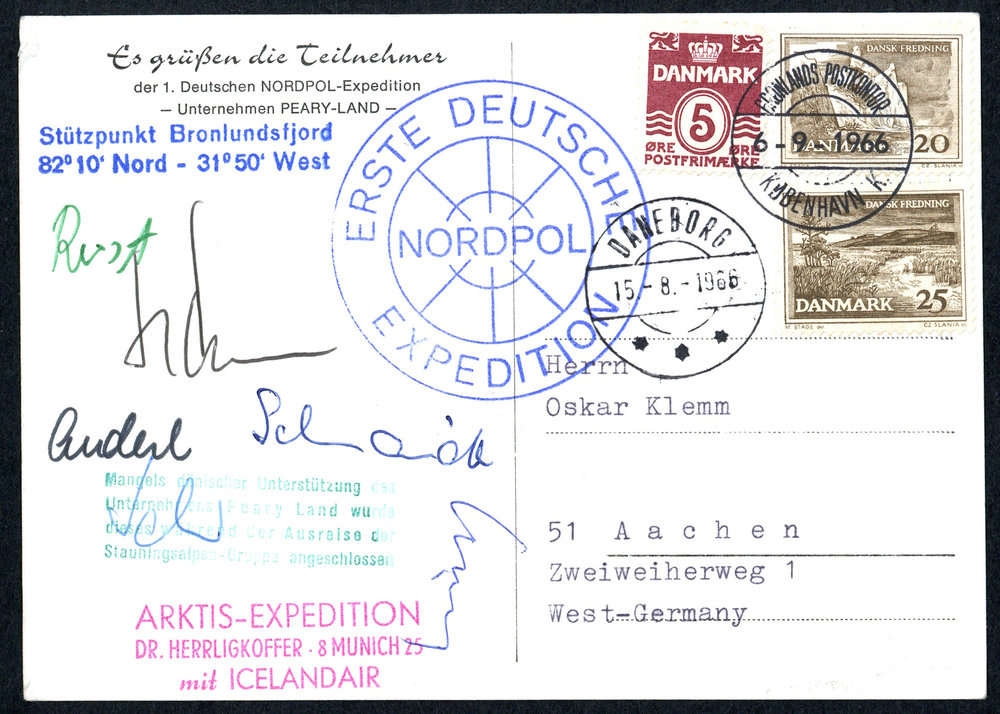 Es grüßen die Teilnehmer
der 1. Deutschen NORDPOL-Expedition
— Unternehmen PEARY-LAND —
Stützpunkt Bronlundsfjord
82º10' Nord - 31º50' West
ERSTE DEUTSCHE
NORDPOL
EXPEDITION
DANMARK
5
ØRE ØRE
POSTFRIMÆRKE
DANSK FREDNING
DANMARK 20
CZ SLANIA
GRØNLANDS POSTKONTOR
6-9.-1966
KØBENHAVN K.
DANSK FREDNING
DANMARK 25
CZ SLANIA
DANEBORG
15.-8.-1966
Rust
Anderl
Herrn
Oskar Klemm
51 Aachen
Zweiweiherweg 1
West-Germany
Mangels dänischer Unterstützung des
Unternehmens Peary Land wurde
dieses während der Ausreise der
Stauningsalpen-Gruppe angeschlossen
ARKTIS-EXPEDITION
DR. HERRLIGKOFFER · 8 MUNICH 25
mit ICELANDAIR